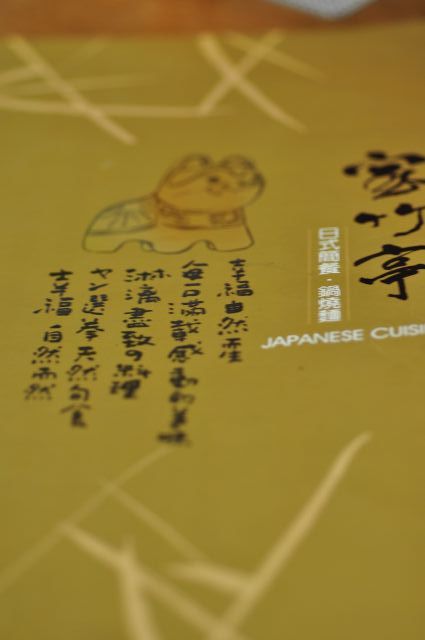 竹亭
日式簡餐·鍋燒麵
JAPANESE CUISI
幸福自然而生
每口滿載感動的美味
淋漓盡致の料理
ヤン選孝天然句食
幸福自然而然